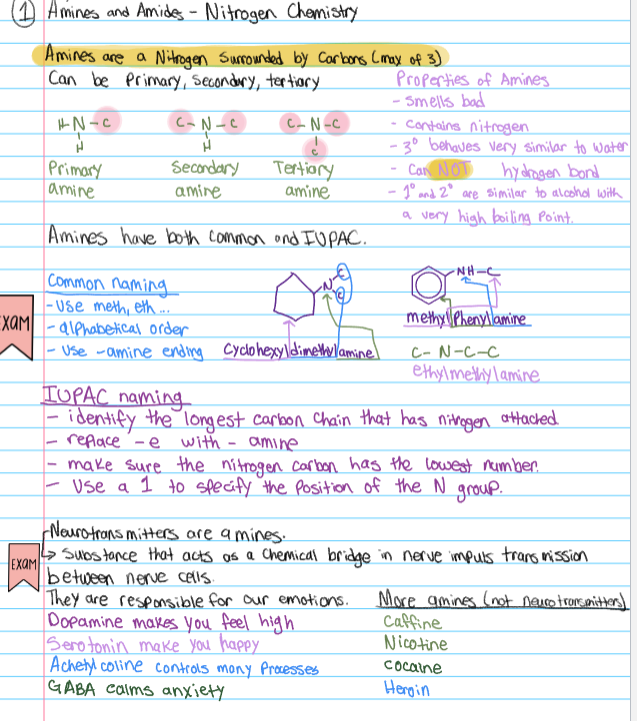 1 Amines and Amides - Nitrogen Chemistry
Amines are a Nitrogen surrounded by Carbons (max of 3)
Can be Primary, Secondary, tertiary
Properties of Amines
- smells bad
- contains nitrogen
- 3° behaves very similar to water
- Can NOT hydrogen bond
- 1° and 2° are similar to alcohol with
a very high boiling point.
H-N-C
H
C-N-C
H
C-N-C
C
Primary amine
Secondary amine
Tertiary amine
Amines have both common and IUPAC.
EXAM
Common naming
- Use meth, eth...
- alphabetical order
- use -amine ending
N
C
C
Cyclohexyldimethylamine
NH-C
methylPhenylamine
C- N-C-C
ethylmethylamine
IUPAC naming
- identify the longest carbon chain that has nitrogen attached
- replace -e with - amine
- make sure the nitrogen carbon has the lowest number.
- Use a 1 to specify the position of the N group.
Neurotransmitters are amines.
EXAM
↳ Substance that acts as a chemical bridge in nerve impuls transmission
between nerve cells.
They are responsible for our emotions.
Dopamine makes you feel high
Serotonin make you happy
Achetylcoline controls many Processes
GABA calms anxiety
More amines (not neurotransmitters)
Caffine
Nicotine
cocaine
Heroin